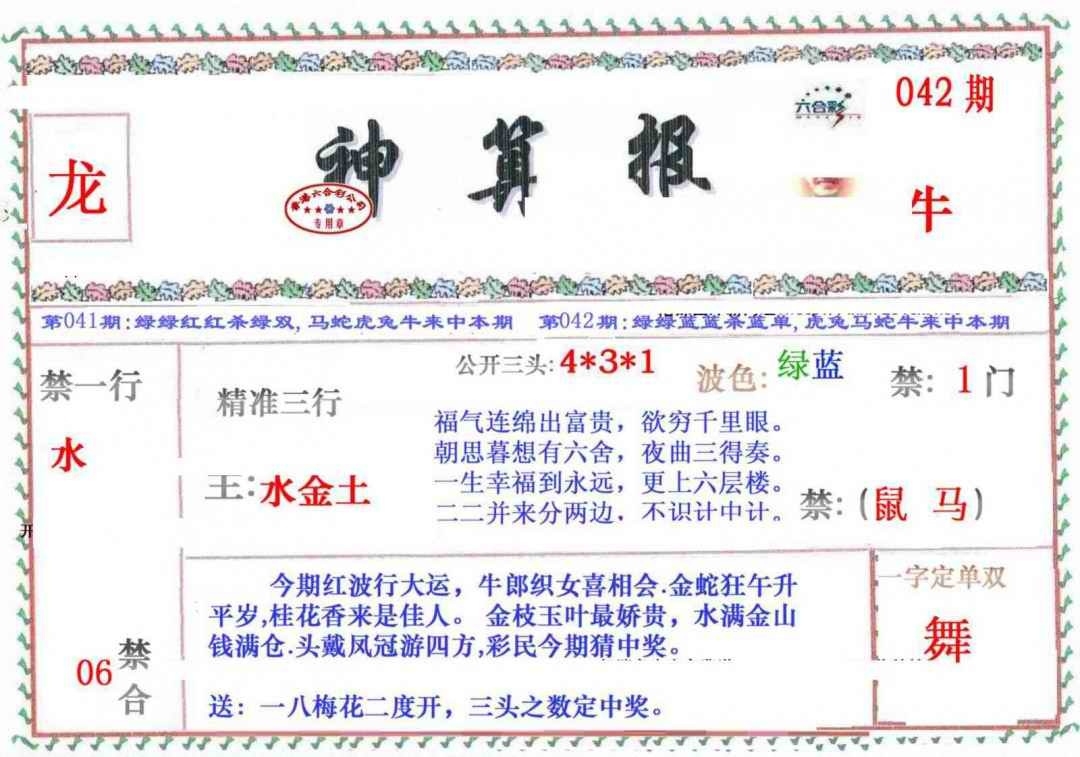 042期
六合彩
龙
神算报
香港六合彩公司
专用章
牛
第041期:绿绿红红杀绿双,马蛇虎兔牛来中本期
第042期:绿绿蓝蓝杀蓝单,虎兔马蛇牛来中本期
禁一行
水
精准三行
王:水金土
公开三头:4*3*1
波色:绿蓝
禁:1门
福气连绵出富贵，欲穷千里眼。
朝思暮想有六舍，夜曲三得奏。
一生幸福到永远，更上六层楼。
二二并来分两边，不识计中计。
禁:(鼠 马)
开
今期红波行大运，牛郎织女喜相会.金蛇狂午升
平岁,桂花香来是佳人。金枝玉叶最娇贵，水满金山
钱满仓.头戴凤冠游四方,彩民今期猜中奖。
送：一八梅花二度开，三头之数定中奖。
一字定单双
舞
06
禁合